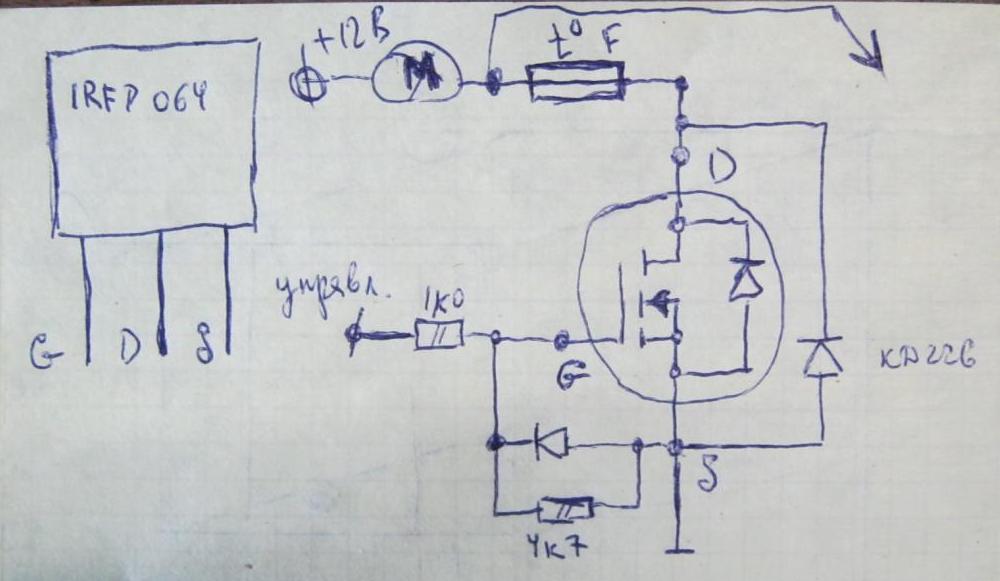 IRFP 064
G D S
+12В
M
t° F
D
управл.
1к0
G
КД226
S
4к7